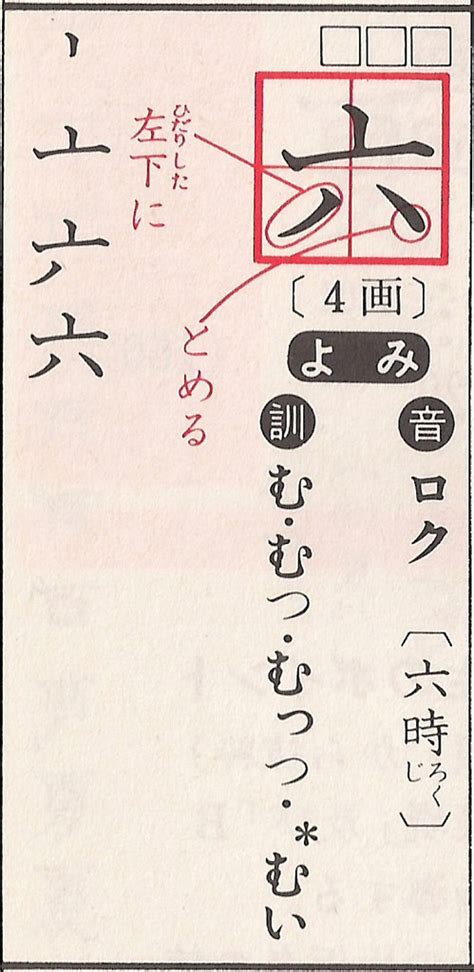 六
〔4画〕
よみ
音 ロク 〔六時〕
ろくじ
訓 む・むつ・むっつ・*むい
左下に
ひだりした
とめる
丶
亠
六
六